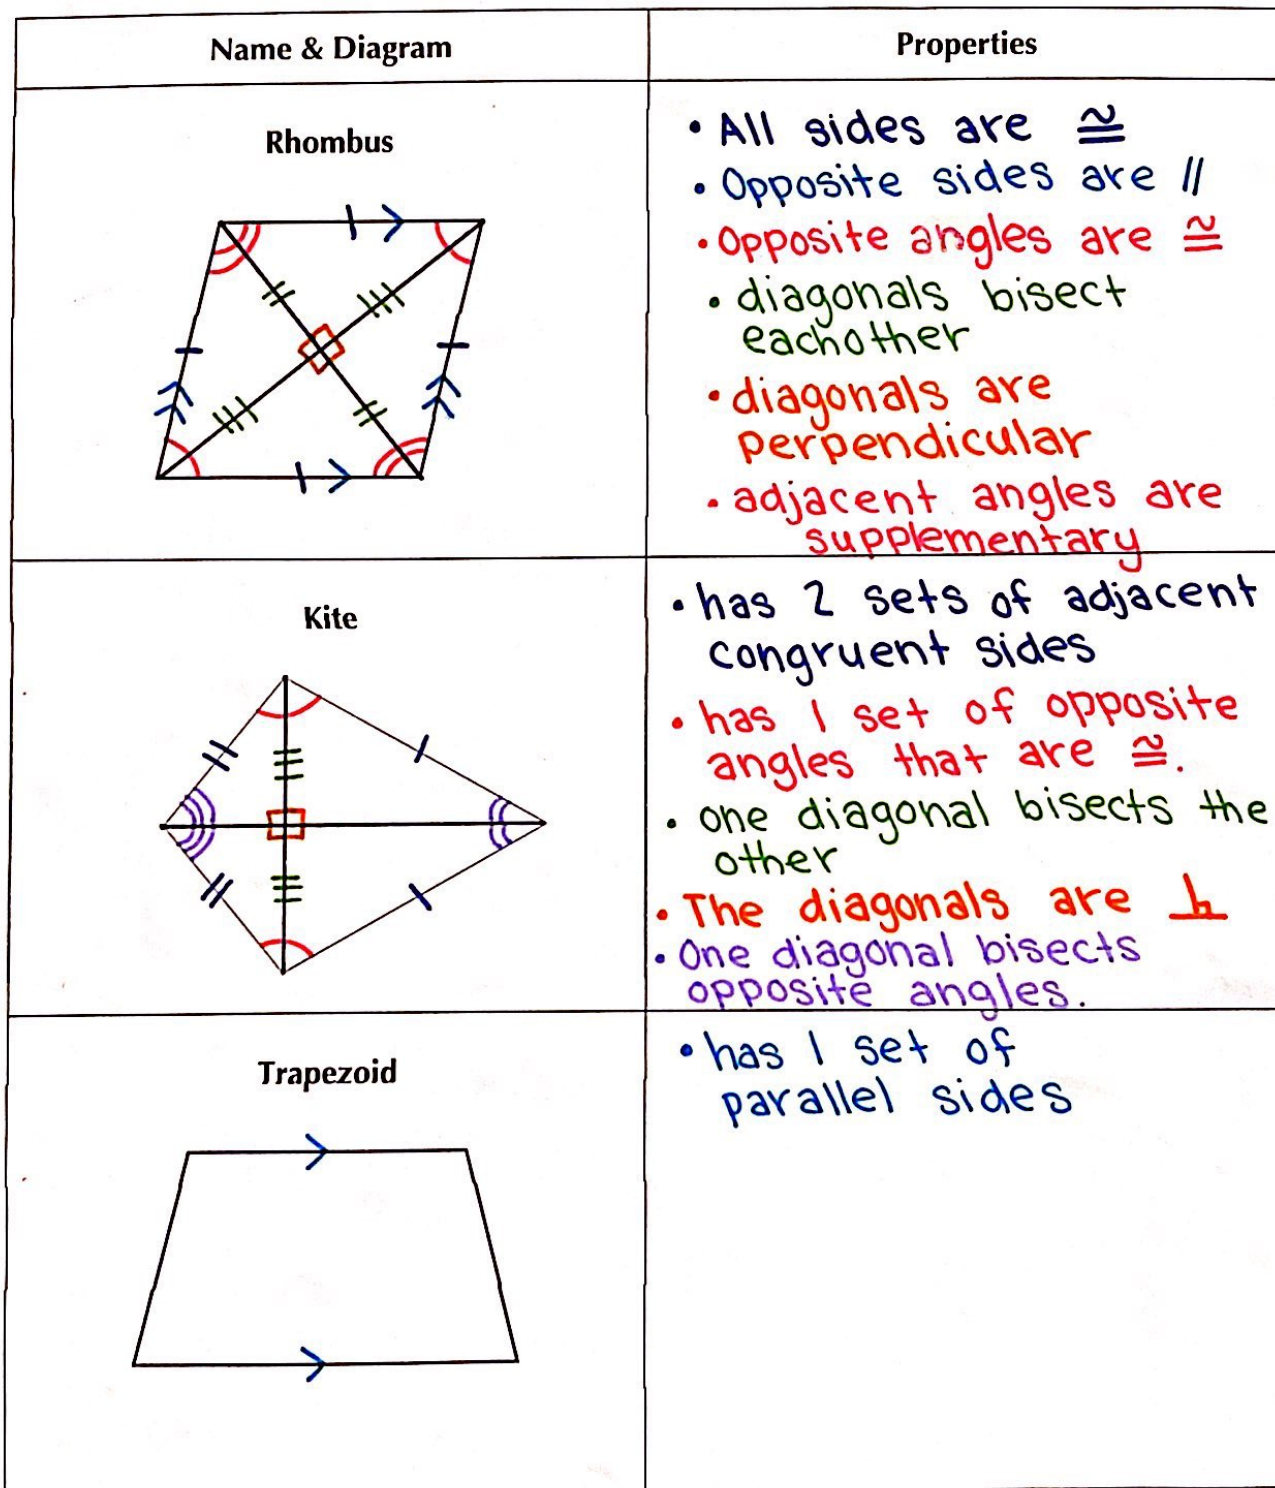 Name & Diagram
Properties
Rhombus
• All sides are ≅
• Opposite sides are //
• Opposite angles are ≅
• diagonals bisect
eachother
• diagonals are
perpendicular
• adjacent angles are
supplementary
Kite
• has 2 sets of adjacent
congruent sides
• has 1 set of opposite
angles that are ≅.
• one diagonal bisects the
other
• The diagonals are ⊥
• One diagonal bisects
opposite angles.
Trapezoid
• has 1 set of
parallel sides